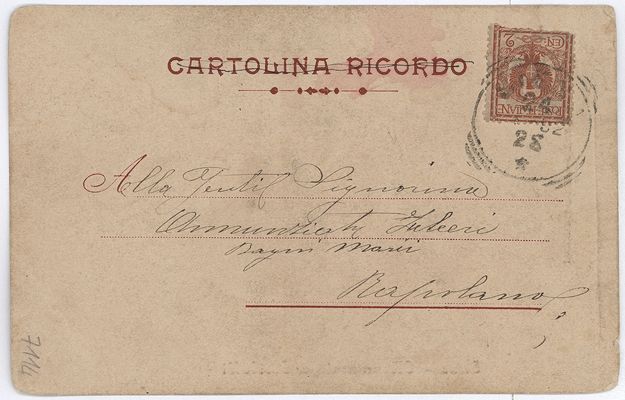 CARTOLINA RICORDO
CEN. 2
POSTE ITALIANE
25
Alla Gentil Signorina
Annunziata
Bagni Marii
Rapolano
7114